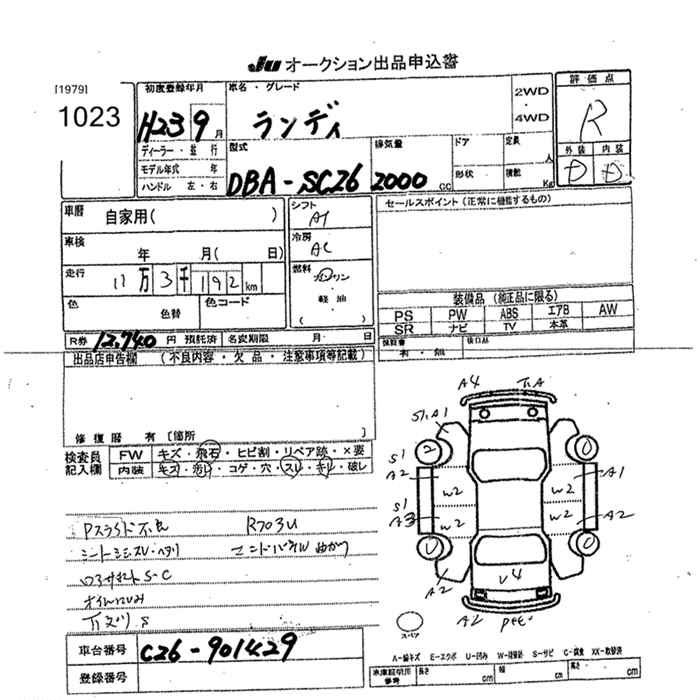 Ju オークション出品申込書
[1979]
1023
初度登録年月
H23 9 月
車名・グレード
ランディ
2WD
・
4WD
評価点
R
外装 内装
D D
ディーラー・並行
モデル年式 年
ハンドル 左・右
型式
DBA-SC26
排気量
2000 CC
ドア
形状
定員
人
積載
Kg
車暦
自家用( )
シフト
AT
車検
年 月( 日)
冷房
AC
走行
11万 3千 192 km
燃料
ガソリン
・
軽油
( )
色
色替
色コード
セールスポイント(正常に機能するもの)
装備品(純正品に限る)
PS PW ABS エアB AW
SR ナビ TV 本革
保証書
有・無
後日品
R券 12,740 円 預託済 名変期限 月・ 日
出品店申告欄 (不良内容・欠品・注意事項等記載)
修復歴 有 [箇所
検査員
記入欄
FW キズ・飛石・ヒビ割・リペア跡・×要
内装 キズ・汚レ・コゲ・穴・スレ・キレ・破レ
A4
S1,A1
2
0
S1
A2
A1
W2
W2
S1
A3
W2
W2
A2
U
0
A2
U4
A2
Pスラらド不良
R703U
シートシミスレ・ヘタリ
エンドパネル曲がり
S-C
オイルにじみ
スペア
車台番号 C26-901429
登録番号
A-線キズ E-エクボ U-凹み W-補修跡 S-サビ C-腐食 XX-取替済
車庫証明用
参考
長さ cm
幅 cm
高さ cm